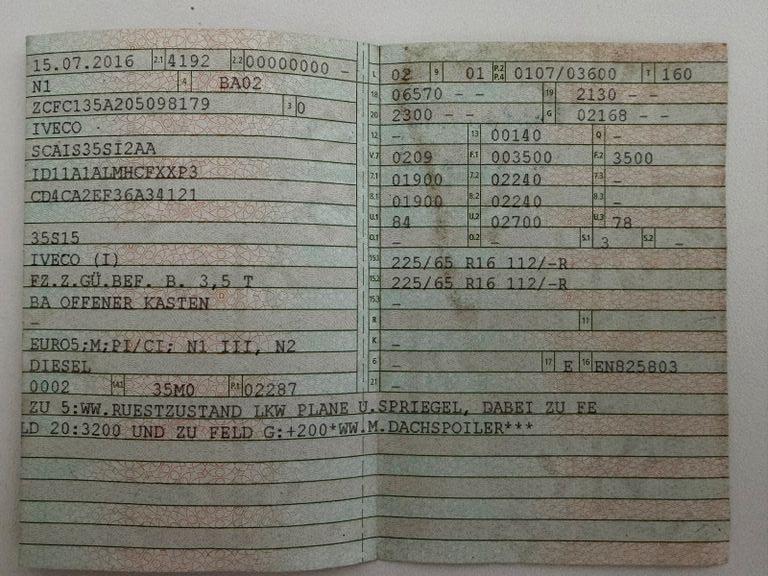 15.07.2016 2.1 4192 2.2 00000000 -
N1 4 BA02
ZCFC135A205098179 3 0
IVECO
SCAIS35SI2AA
ID11A1ALMHCFXXP3
CD4CA2EF36A34121
35S15
IVECO (I)
FZ.Z.GÜ.BEF. B. 3,5 T
BA OFFENER KASTEN
–
EURO5;M;PI/CI; N1 III, N2
DIESEL
0002 14.1 35M0 P.1 02287
L 02 9 01 P.2 P.4 0107/03600 T 160
18 06570 - - 19 2130 - -
20 2300 - - G 02168 - -
12 - 13 00140 Q -
V.7 0209 F.1 003500 F.2 3500
7.1 01900 7.2 02240 7.3 -
8.1 01900 8.2 02240 8.3 -
U.1 84 U.2 02700 U.3 78
O.1 - O.2 - S.1 3 S.2 -
15.1 225/65 R16 112/-R
15.2 225/65 R16 112/-R
15.3 -
R 11
K -
6 - 17 E 16 EN825803
21 -
ZU 5:WW.RUESTZUSTAND LKW PLANE U.SPRIEGEL, DABEI ZU FE
LD 20:3200 UND ZU FELD G:+200*WW.M.DACHSPOILER***